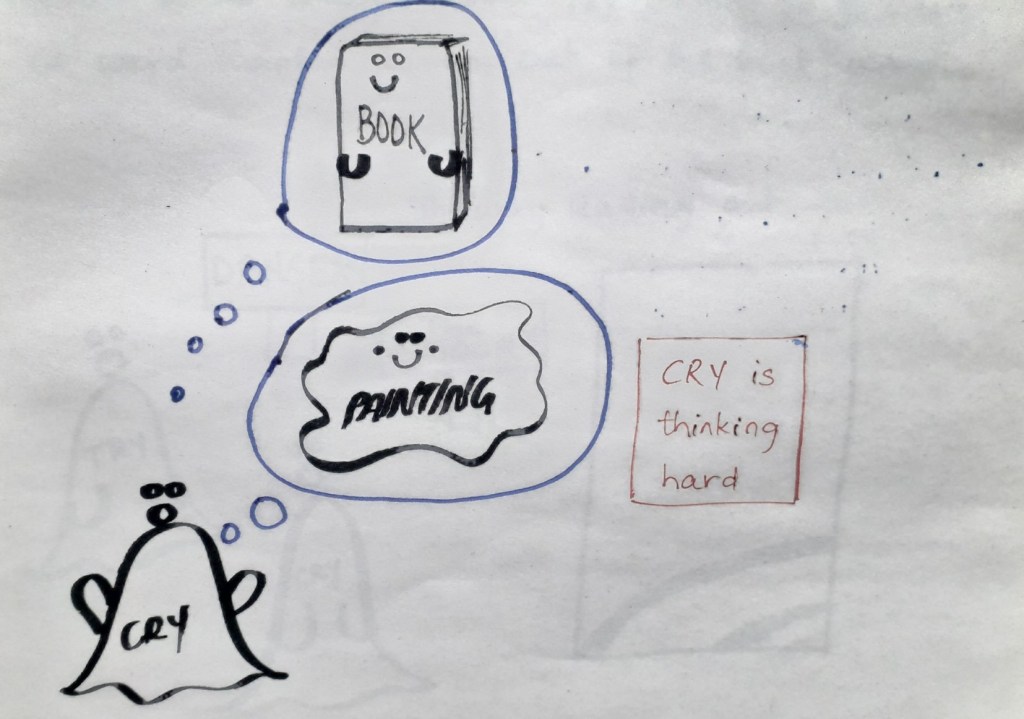 BOOK
PAINTING
CRY is
thinking
hard
CRY